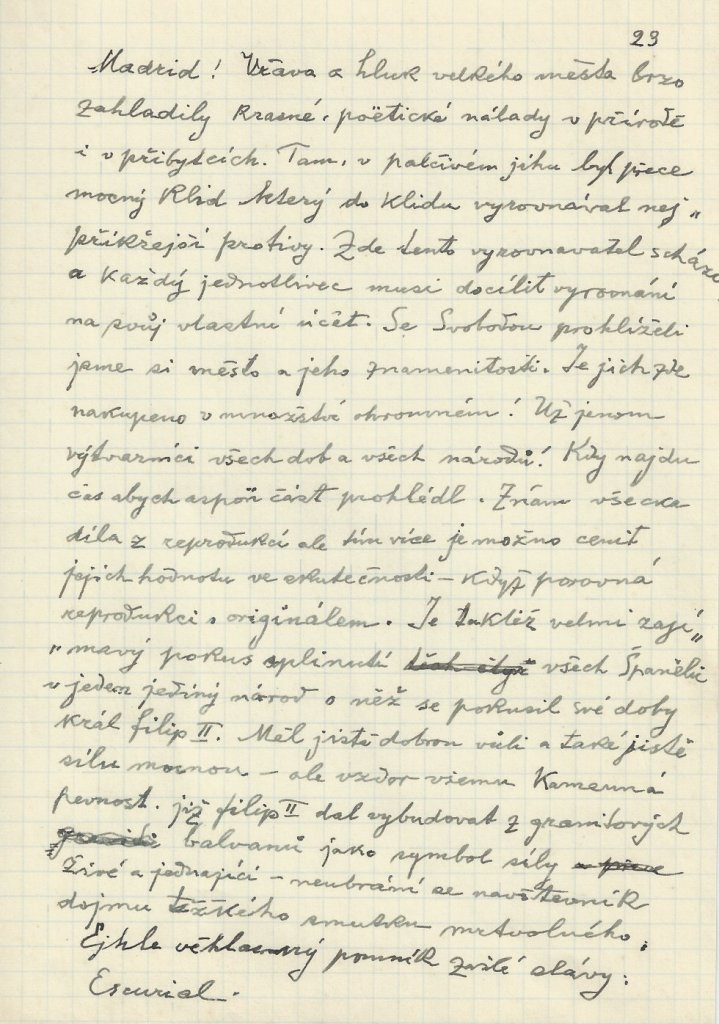 23
Madrid! Vřava a hluk velkého města brzo
zahladily krasné, poëtické nálady v přírodě
i v příbytcích. Tam, v palčivém jihu byl přece
mocný klid který do klidu vyrovnával nej„
příkřejší protivy. Zde tento vyrovnavatel schází
a každý jednotlivec musi docílit vyrovnání
na svůj vlastní účet. Se Svobodou prohlíželi
jsme si město a jeho znamenitosti. Je jich zde
nakupeno v množství ohromném! Už jenom
výtvarníci všech dob a všech národů! Kdy najdu
čas abych aspoň část prohlédl. Znám všecka
díla z reprodukcí ale tím více je možno cenit
jejich hodnotu ve skutečnosti – když porovná
reprodukci s originálem. Je taktéž velmi zají„
„mavý pokus splinutí všech Španělů
v jeden jediný národ o něž se pokusil své doby
král filip II. Měl jistě dobrou vůli a také jistě
sílu mocnou – ale vzdor všemu Kamenná
pevnost. již filip II dal vybudovat z granitových
balvanů jako symbol síly
živé a jednající – neubrání se navštěvník
dojmu těžkého smutku mrtvolného.
Ejhle věhlasný pomník zašlé slávy:
Escurial.